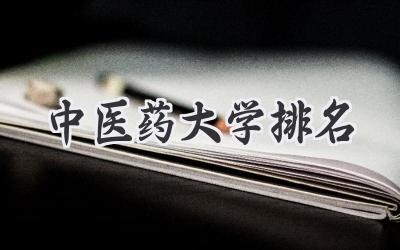 中医药大学排名